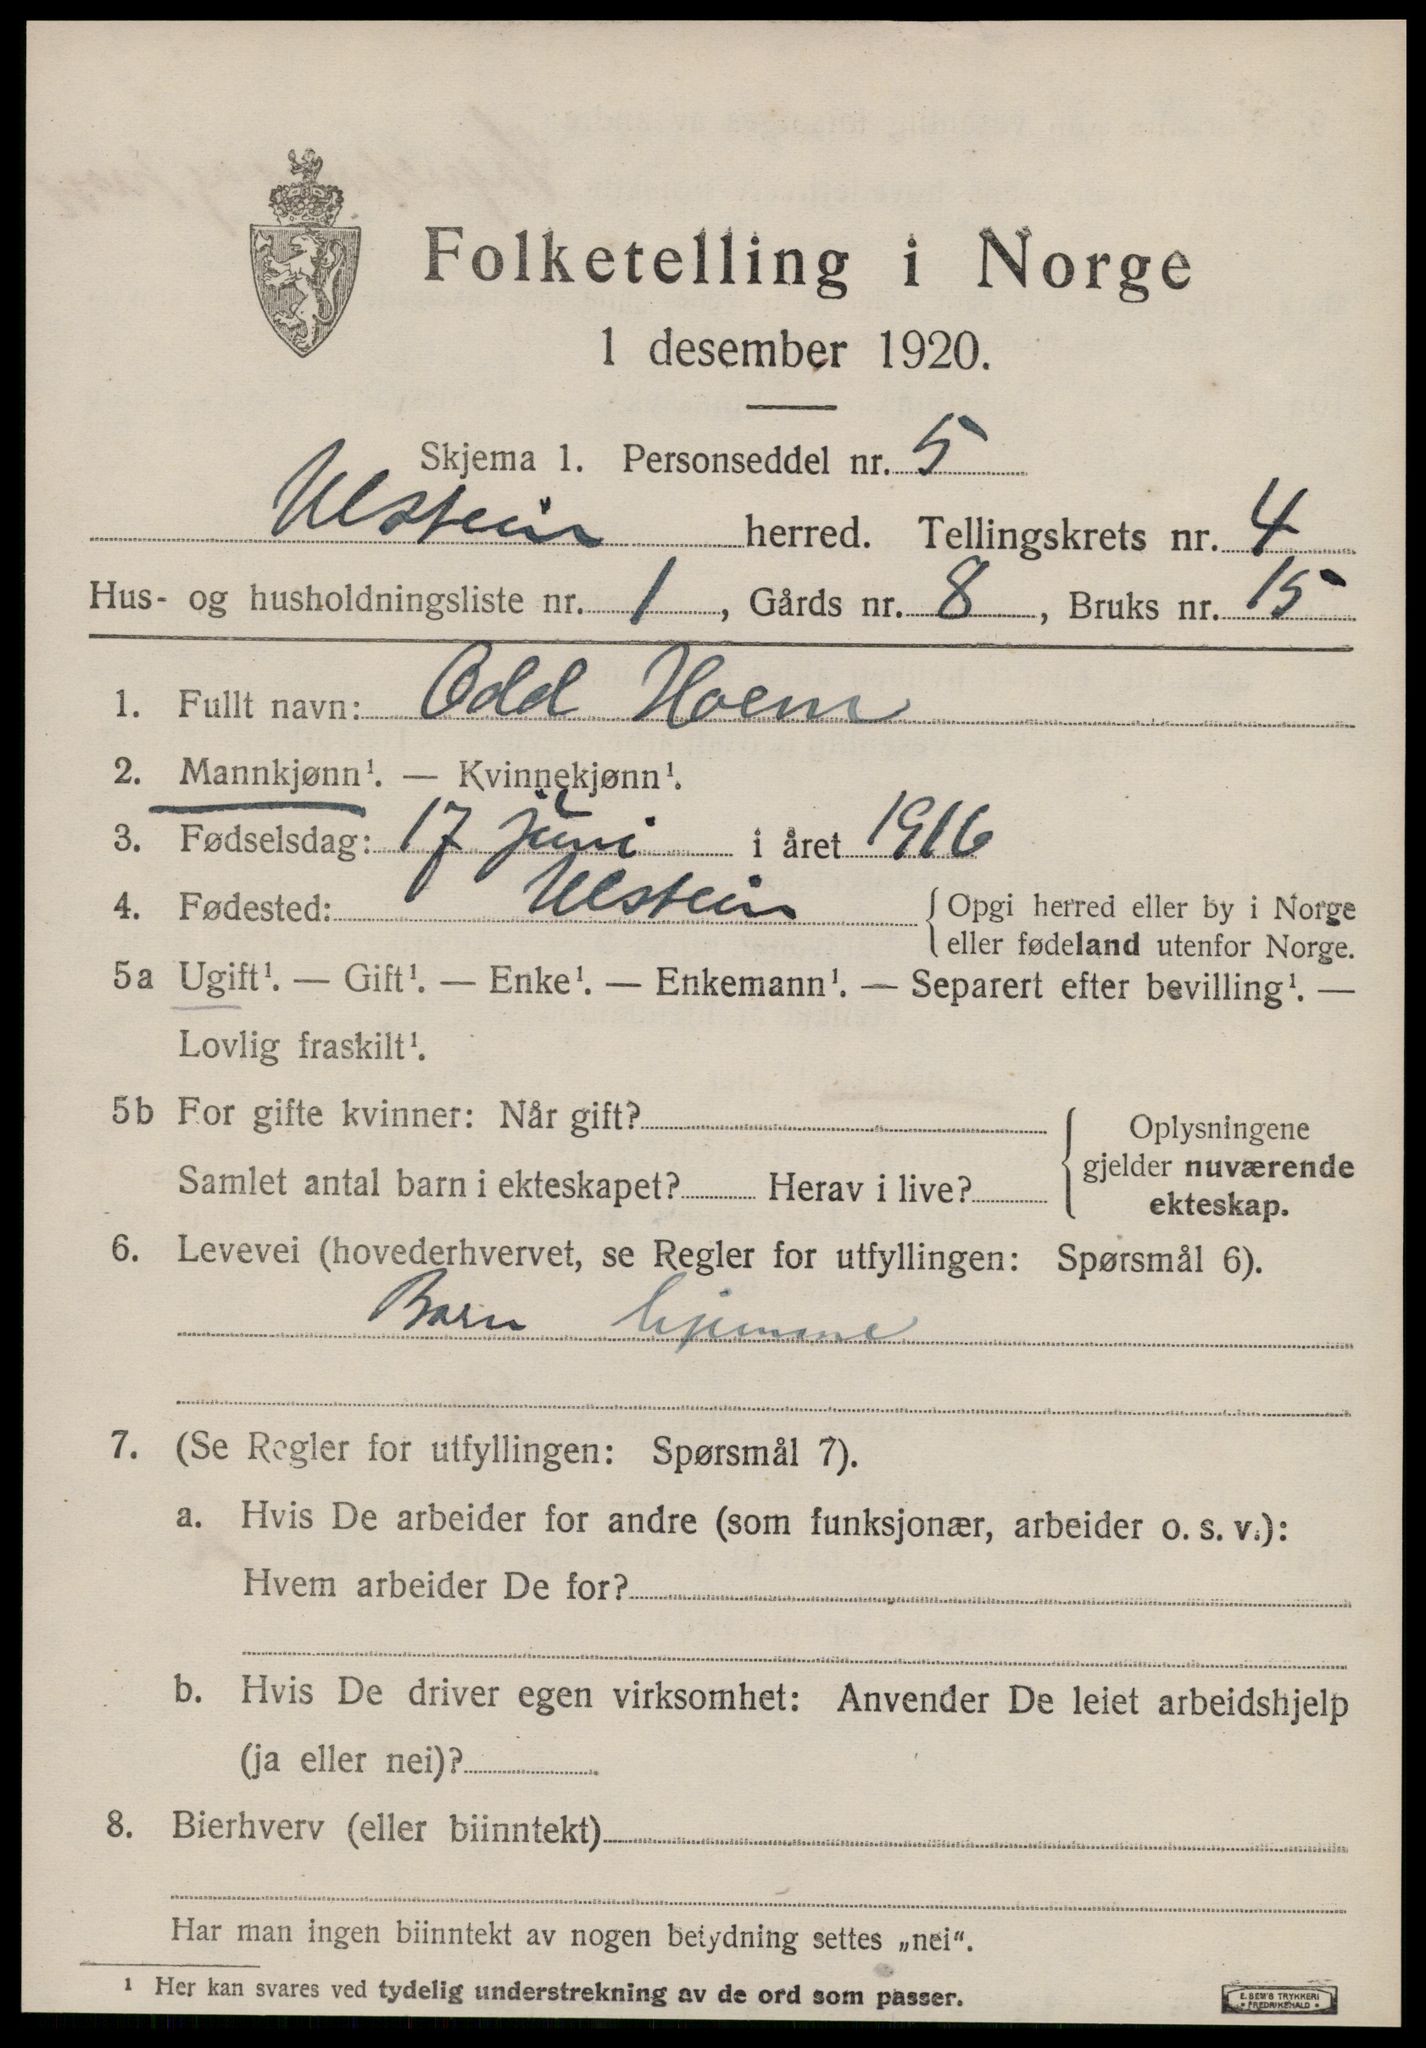 Folketelling i Norge
1 desember 1920.
Skjema 1. Personseddel nr. 5
Ulstein herred. Tellingskrets nr. 4
Hus- og husholdningsliste nr. 1, Gårds nr. 8, Bruks nr. 15
1. Fullt navn: Odd Hoem
2. Mannkjønn¹. — Kvinnekjønn¹.
3. Fødselsdag: 17 juni i året 1916
4. Fødested: Ulstein { Opgi herred eller by i Norge
eller fødeland utenfor Norge.
5a Ugift¹. — Gift¹. — Enke¹. — Enkemann¹. — Separert efter bevilling¹. —
Lovlig fraskilt¹.
5b For gifte kvinner: Når gift? { Oplysningene
gjelder nuværende
Samlet antal barn i ekteskapet? Herav i live? ekteskap.
6. Levevei (hovederhvervet, se Regler for utfyllingen: Spørsmål 6).
Barn hjemme
7. (Se Regler for utfyllingen: Spørsmål 7).
a. Hvis De arbeider for andre (som funksjonær, arbeider o. s. v.):
Hvem arbeider De for?
b. Hvis De driver egen virksomhet: Anvender De leiet arbeidshjelp
(ja eller nei)?
8. Bierhverv (eller biinntekt)
Har man ingen biinntekt av nogen betydning settes „nei“.
¹ Her kan svares ved tydelig understrekning av de ord som passer.
E. SEM'S TRYKKERI
• FREDRIKSHALD •